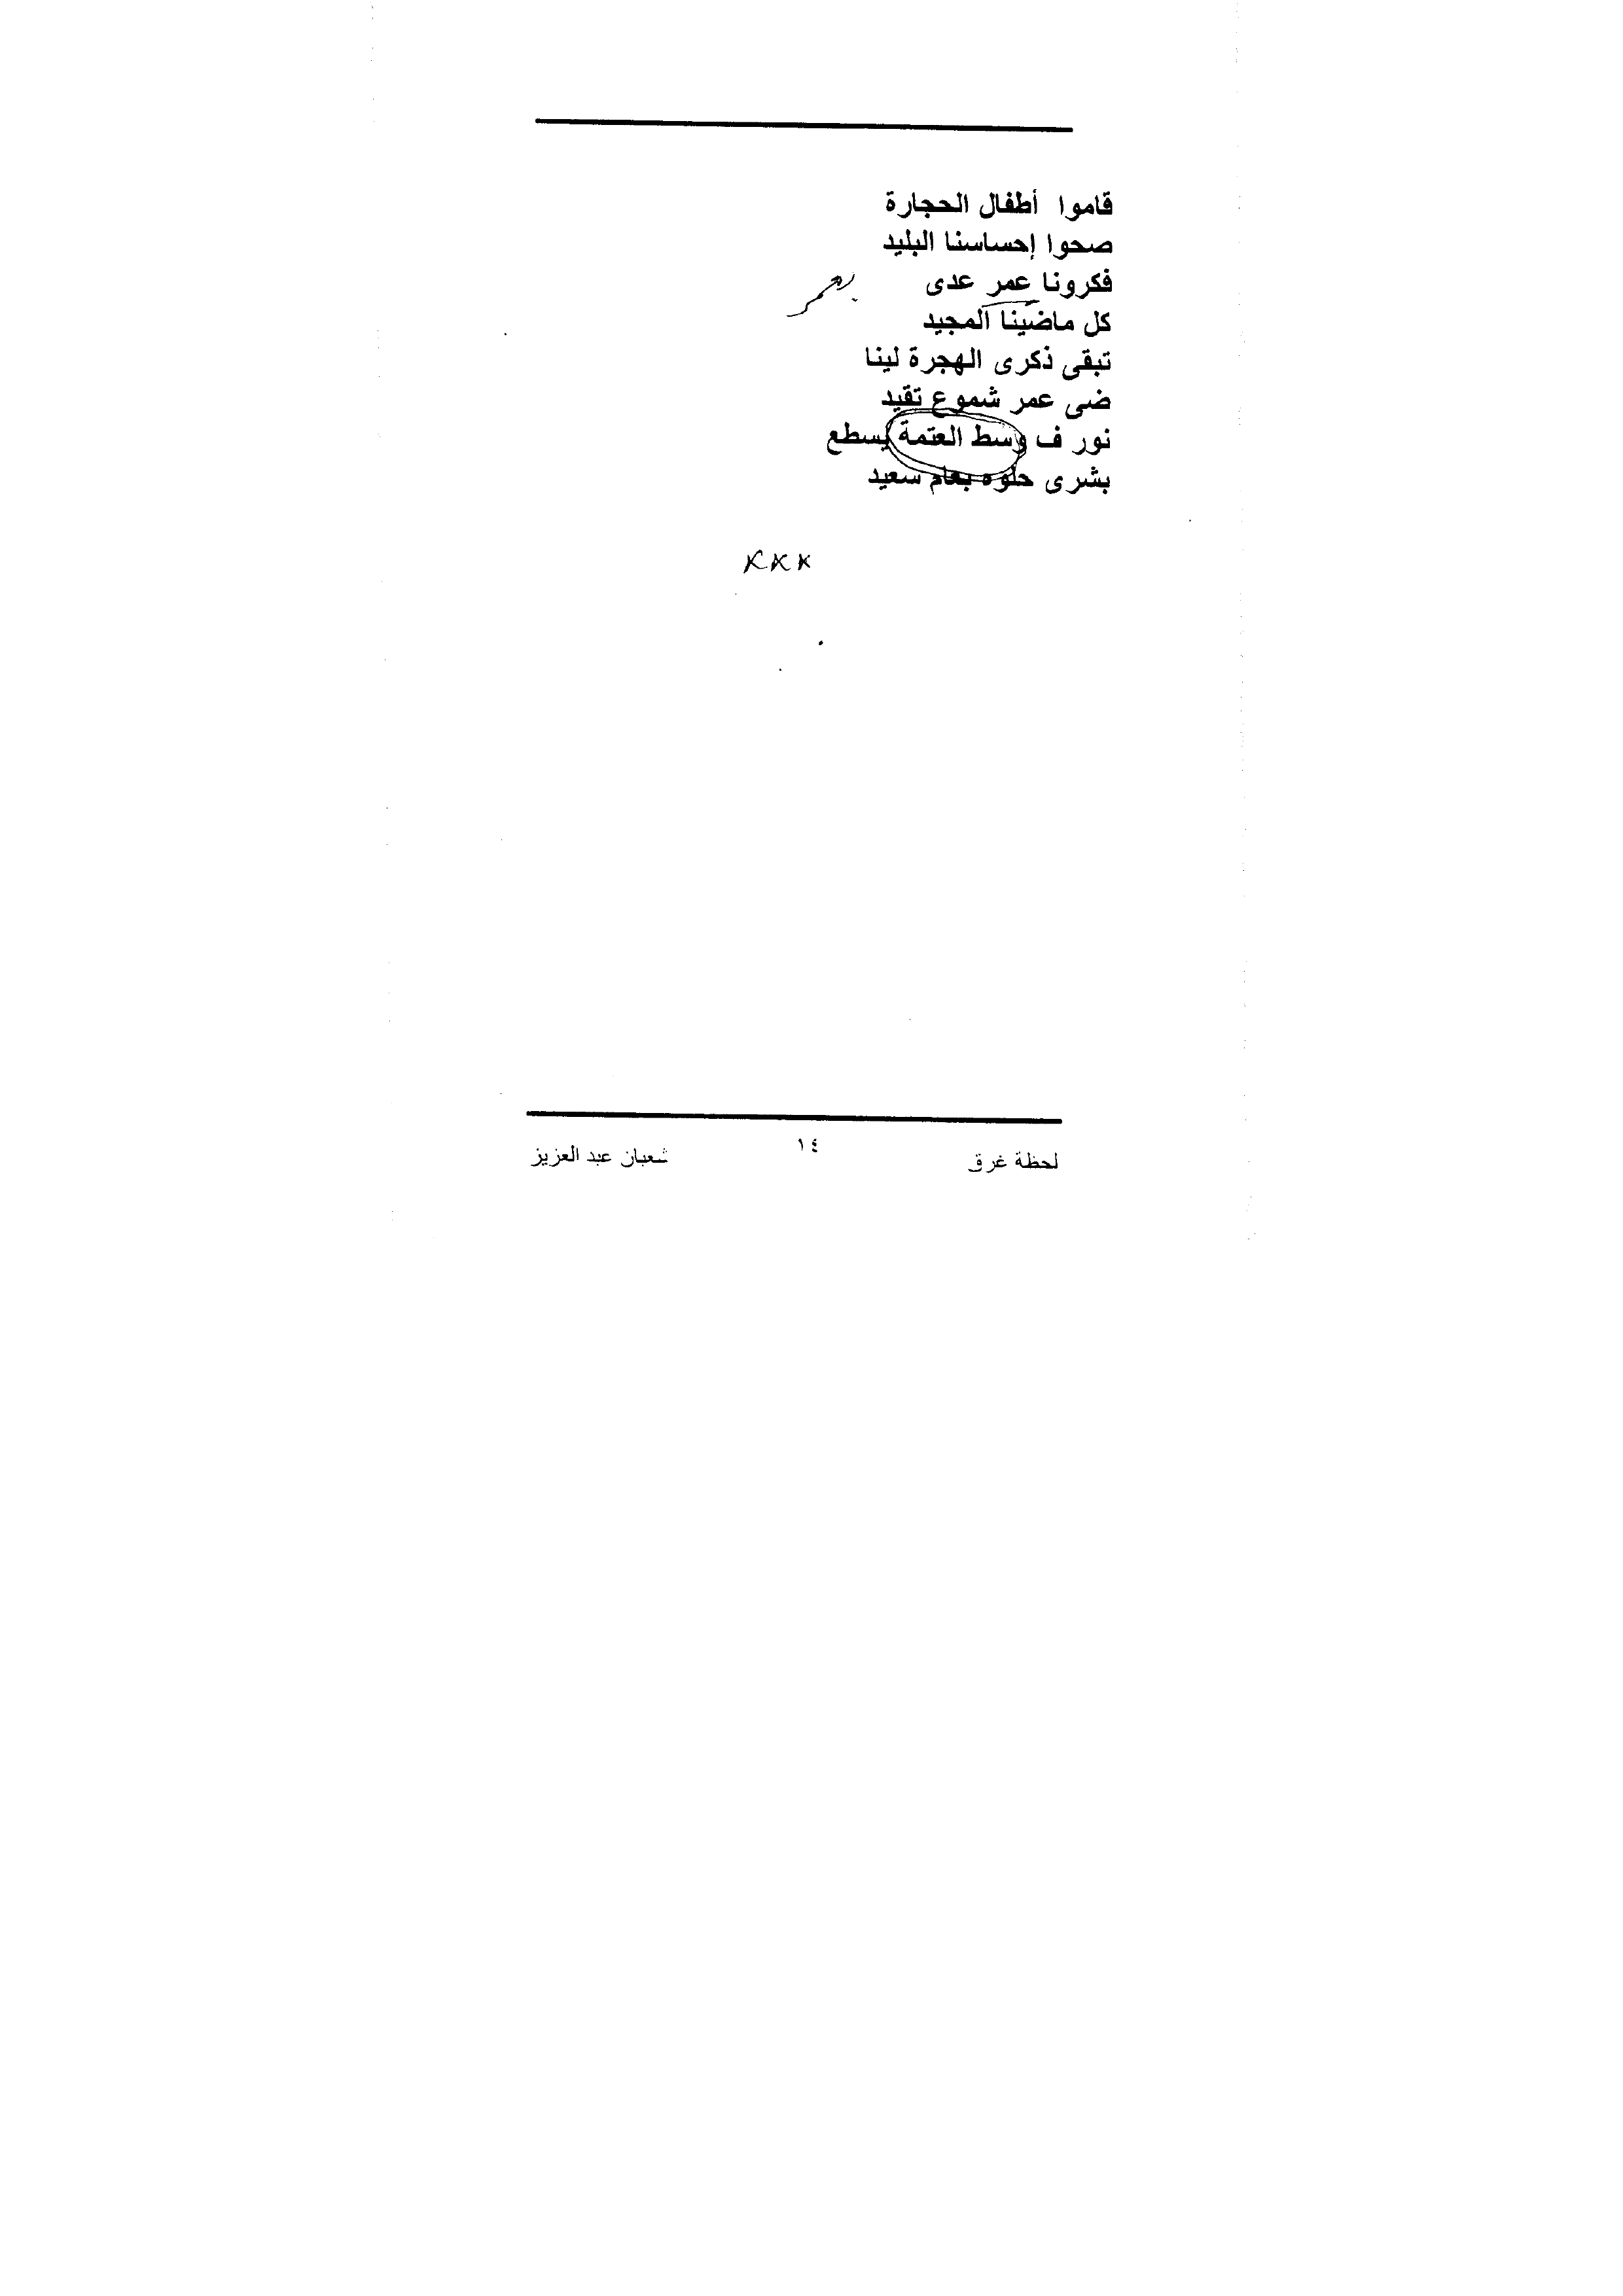 قاموا أطفال الحجارة
صحوا إحساسنا البليد
فكرونا عمر عدى
بعمر
كل ماضينا المجيد
تبقى ذكرى الهجرة لينا
ضى عمر شموع تقيد
نور ف وسط العتمة يسطع
بشرى حلوه بعام سعيد
×××
١٤
لحظة غرق
شعبان عبد العزيز